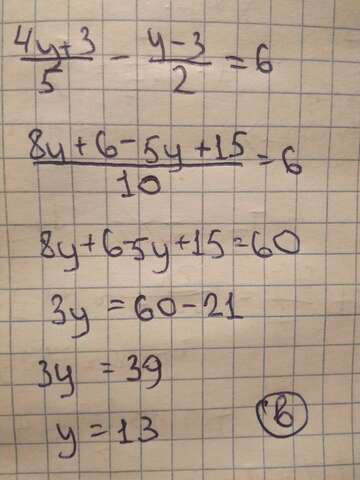 (4y+3)/5 - (y-3)/2 = 6
(8y+6-5y+15)/10 = 6
8y+6-5y+15=60
3y = 60-21
3y = 39
y = 13
b